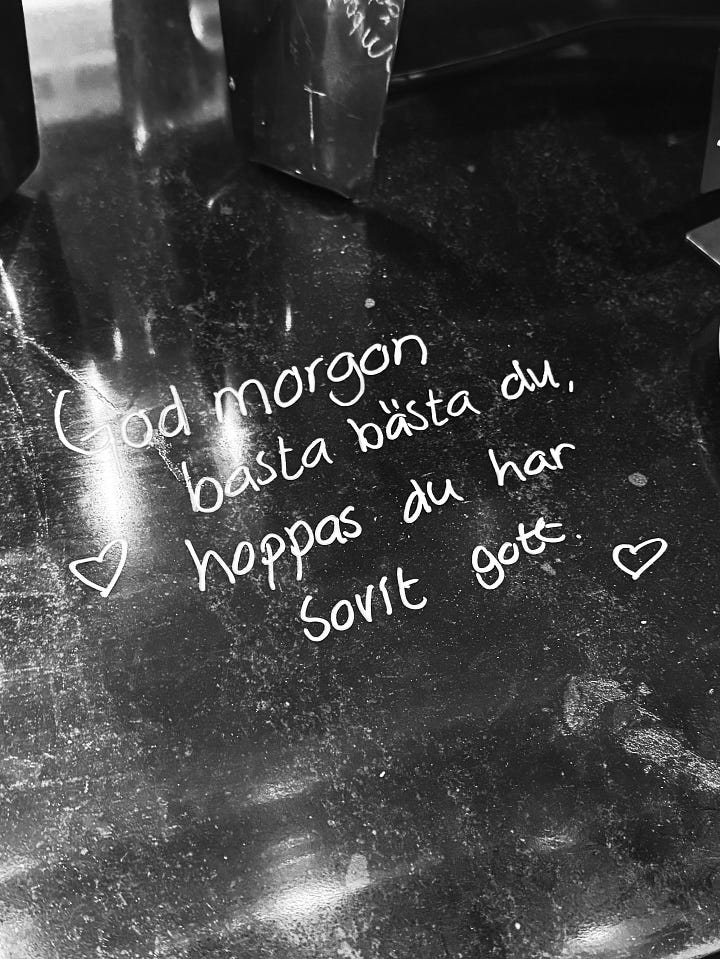 God morgon
basta bästa du,
hoppas du har
sovit gott.